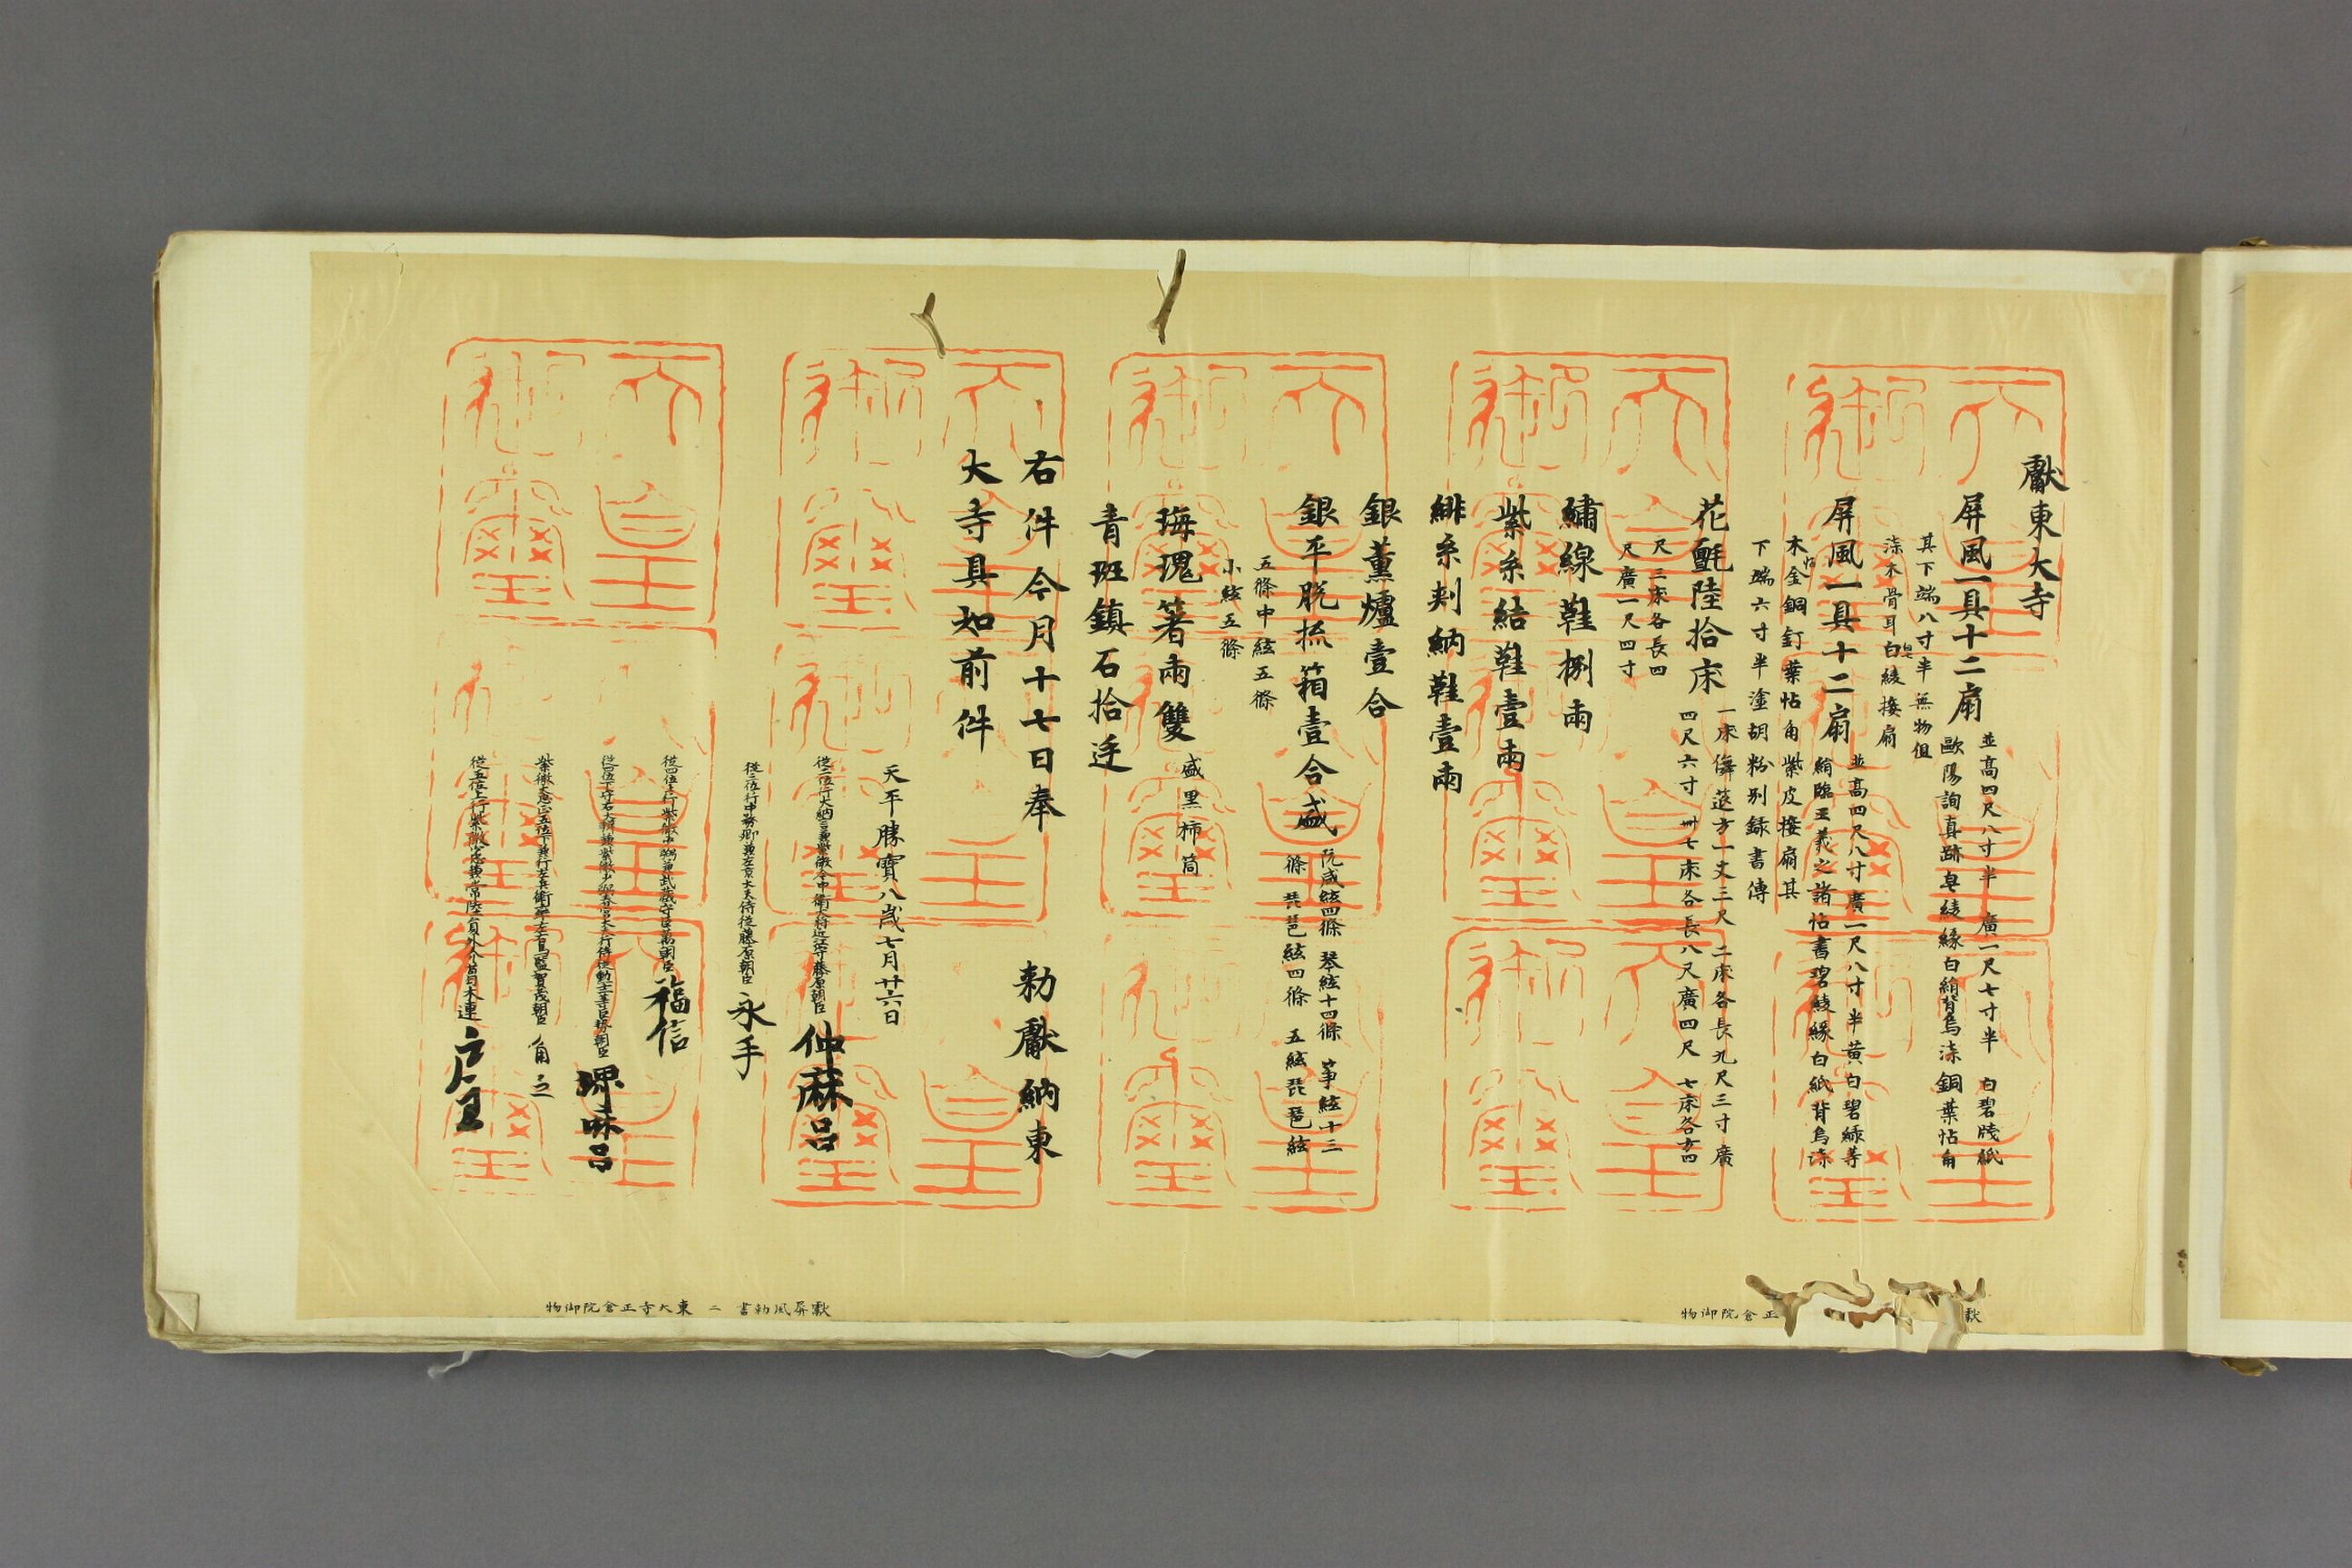 獻東大寺
屏風一具十二扇
並高四尺八寸半 廣一尺七寸半 白碧牋紙
歐陽詢真跡皂綾緣白絹背烏漆銅葉帖角
其下端八寸半無物但
漆木骨耳皂白綾接扇
屏風一具十二扇
並高四尺八寸廣一尺八寸半黄白碧緑等
絹臨王羲之諸帖書碧綾緣白紙背烏漆
木帖金銅釘葉帖角紫皮接扇其
下端六寸半塗胡粉別録書傳
花氈陸拾床
一床儛莚方一丈三尺 二床各長九尺三寸廣
四尺六寸 卌七床各長八尺廣四尺 七床各方四
尺 三床各長四
尺廣一尺四寸
繡線鞋捌兩
紫糸結鞋壹兩
緋糸刺納鞋壹兩
銀薰爐壹合
銀平脱梳箱壹合盛
阮咸絃四條 琴絃十四條 箏絃十三
條 琵琶絃四條 五絃琵琶絃
五條中絃五條
小絃五條
瑇瑰箸兩雙 盛黒柿筒
青斑鎮石拾廷
右件今月十七日奉 勅獻納東
大寺具如前件
天平勝寳八歳七月廿六日
從二位行大納言兼紫微令中衛大將近江守藤原朝臣 仲麻呂
從三位行中務卿兼左京大夫侍從藤原朝臣 永手
從四位上行紫微少弼兼武藏守巨萬朝臣 福信
從四位下守右大辨兼紫微少弼春宮大夫行侍從勲十二等巨勢朝臣 堺麻呂
紫微大忠正五位下兼行左兵衛率左右馬監賀茂朝臣 角足
從五位上行紫微少忠葛木連 戸主
天皇御璽
獻屏風勅書 二 東大寺正倉院御物
獻 正倉院御物